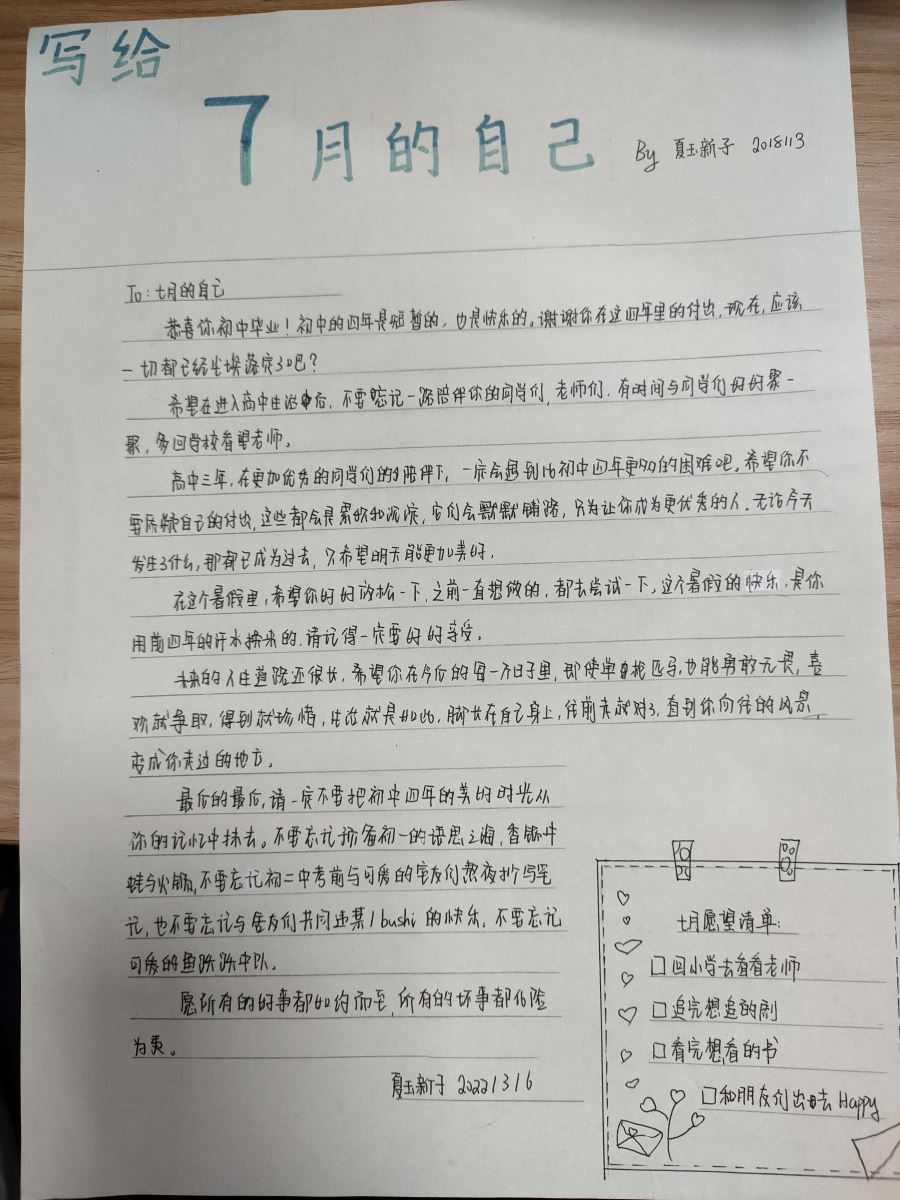 写给
7月的自己 By 夏玉新子 2018113
To:七月的自己
恭喜你初中毕业!初中的四年是短暂的,也是快乐的。谢谢你在这四年里的付出,现在,应该
一切都已经尘埃落定了吧?
希望在进入高中生活中后,不要忘记一路陪伴你的同学们,老师们.有时间与同学们好好聚一
聚,多回学校看望老师。
高中三年,在更加优秀的同学们的陪伴下,一定会遇到比初中四年更多的困难吧。希望你不
要质疑自己的付出,这些都会是累积和沉淀,它们会默默铺路,只为让你成为更优秀的人.无论今天
发生了什么,那都已成为过去,只希望明天能更加美好.
在这个暑假里,希望你好好放松一下,之前一直想做的,都去尝试一下,这个暑假的快乐,是你
用前四年的汗水换来的.请记得一定要好好享受。
未来的人生道路还很长,希望你在今后的每一个日子里,即使单枪匹马,也能勇敢无畏,喜
欢就争取,得到就珍惜,生活就是如此,脚长在自己身上,往前走就对了,直到你向往的风景,
变成你走过的地方。
最后的最后,请一定不要把初中四年的美好时光从
你的记忆中抹去。不要忘记预备初一的语思之海,香锅牛
蛙与火锅,不要忘记初二中考前与可爱的室友们熬夜抄写笔
记,也不要忘记与室友们共同迷某1bushi的快乐,不要忘记
可爱的鱼跃跃中队。
愿所有的好事都如约而至,所有的坏事都化险
为夷。
夏玉新子 20221316
七月愿望清单:
□回小学去看看老师
□追完想追的剧
□看完想看的书
□和朋友们出去Happy